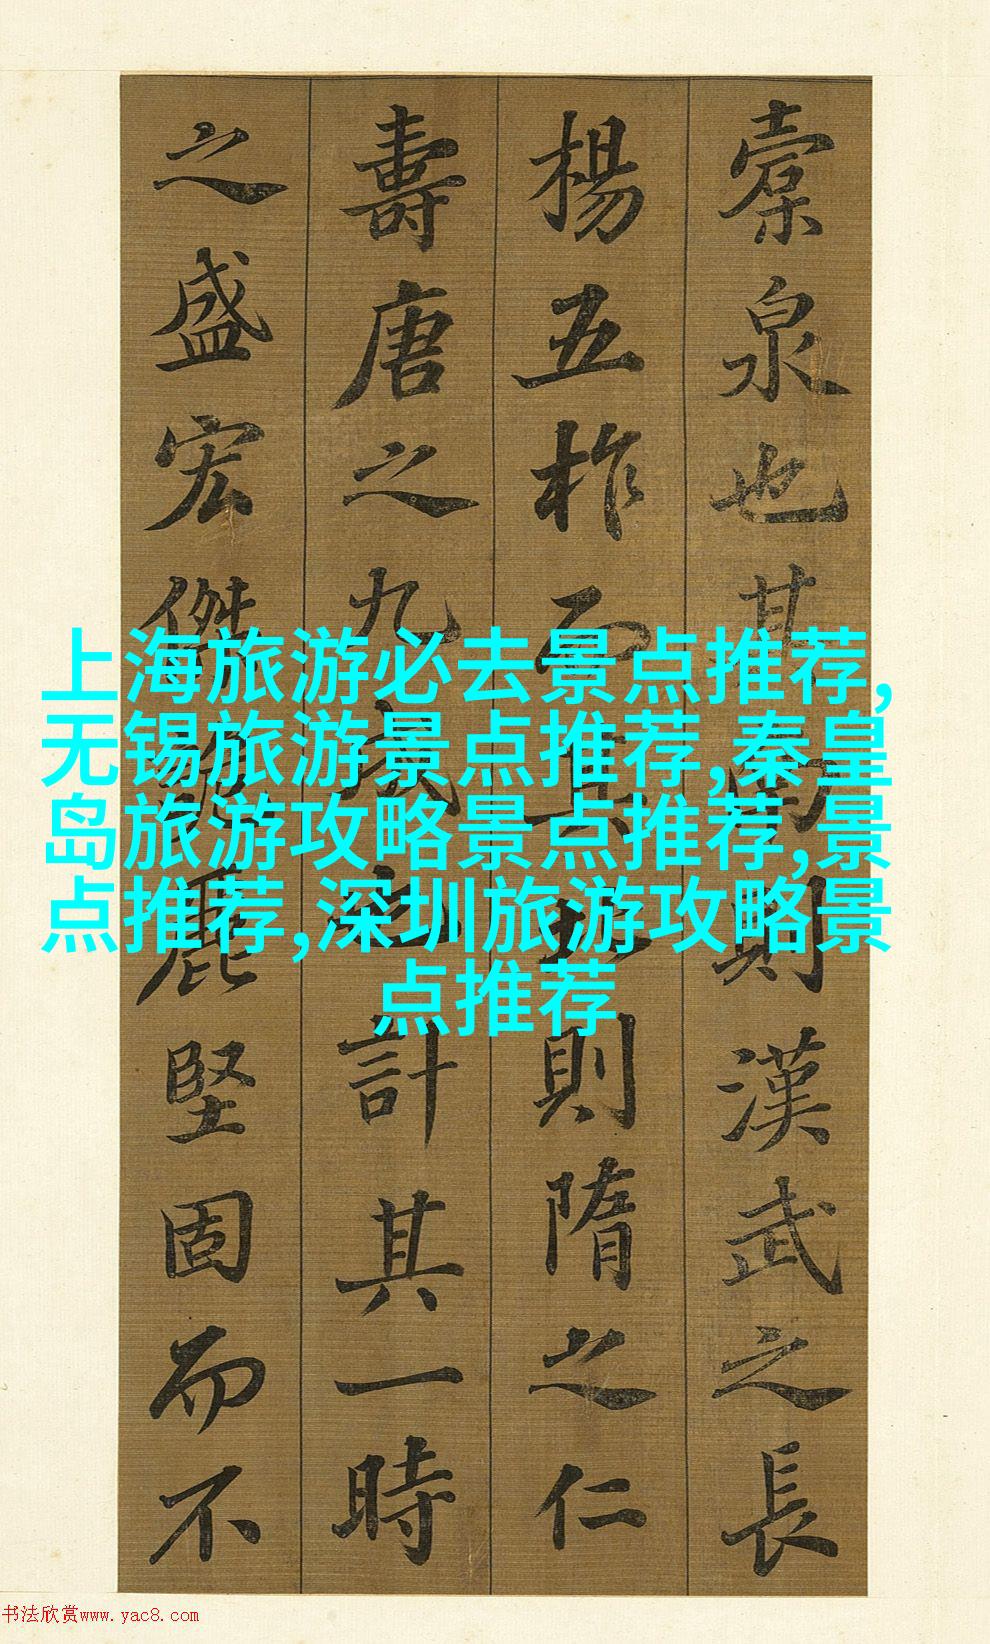 橐泉也其南則漢武之長
楊五柞而其北則隋之仁
壽唐之九成也計其一時
之盛宏傑詭麗堅固而不
上海旅游必去景点推荐,
无锡旅游景点推荐,秦皇
岛旅游攻略景点推荐,景
点推荐,深圳旅游攻略景
点推荐
书法欣赏www.yac8.com